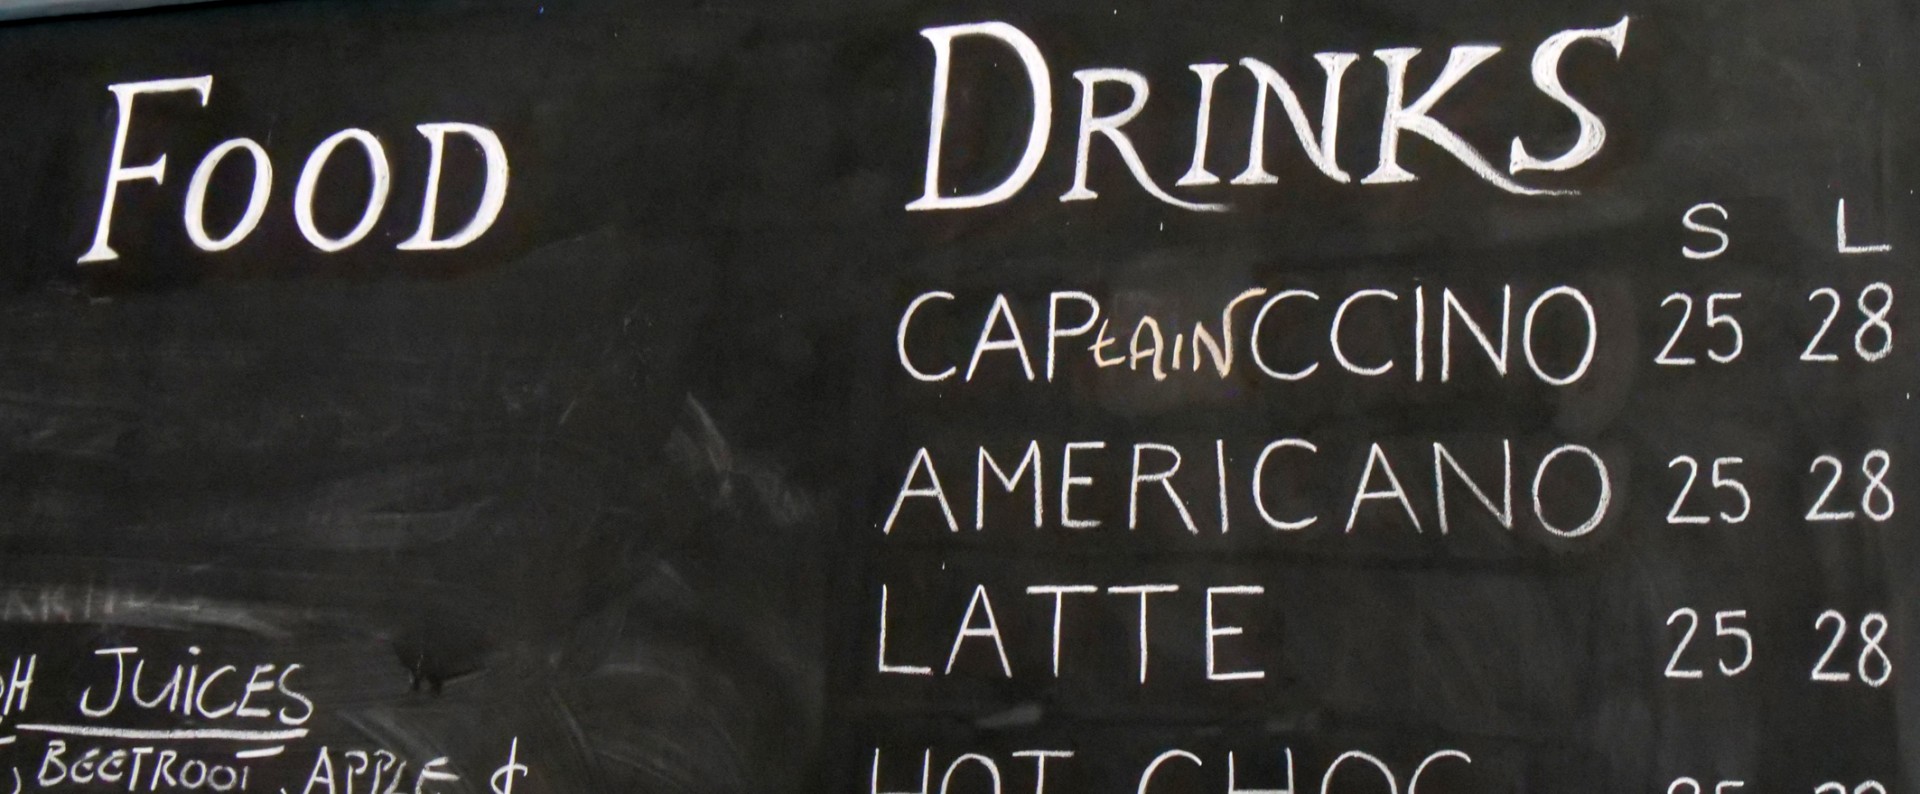 FOOD
JUiCES
, BEETROOT, APPLE &
DRINKS
S L
CAPtAINCCINO 25 28
AMERICANO 25 28
LATTE 25 28
HOT CHOC